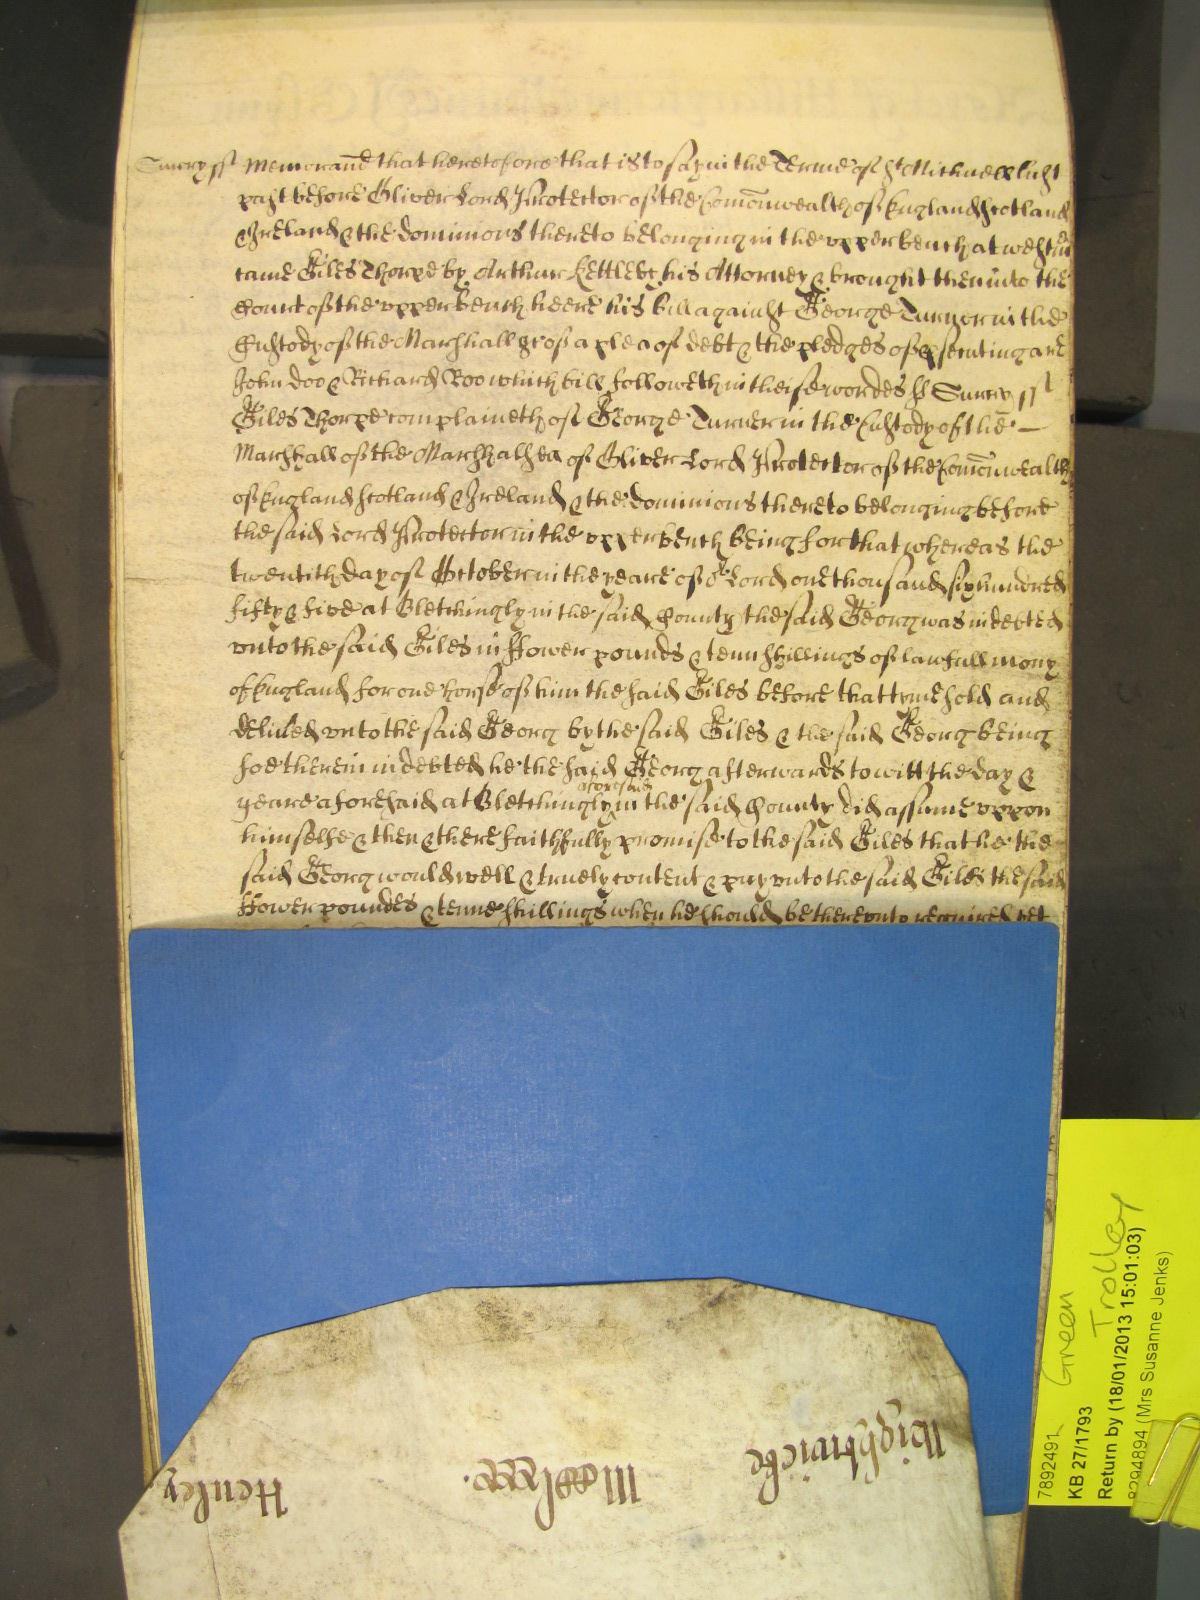 Surrey ss Memorand that heretofore that is to say in the Terme of St Michaell last
past before Oliver Lord Protector of the Comonwealth of England Scotland
& Ireland & the dominions thereto belonging in the upper bench at westm
came Giles Thorpe by Arthur Kettleby his Attorney & brought then into the
Court of the upper bench heere his bill against George Turnor in the
Custody of the Marshall &c of a plea of debt & the pledges of psecuting are
John doo & Richard Roo which bill followeth in theise wordes ss Surrey ss
Giles Thorpe complaineth of George Turner in the Custody of the
Marshall of the Marshalsea of Oliver Lord Protector of the Comonwealth
of England Scotland & Ireland & the dominions thereto belonging before
the said Lord Protector in the upper bench being for that whereas the
twentith day of October in the yeare of or Lord one thousand six hundred
fifty & five at Bletchingly in the said County the said Georg was indebted
unto the said Giles in ffower pounds & tenn shillings of lawfull mony
of England for one horse of him the said Giles before that tyme sold and
delived unto the said Georg by the said Giles & the said Georg being
soe therein indebted he the said Georg afterwards to witt the day &
yeare aforesaid at Bletchingly aforesaid in the said County did assume uppon
himselfe & then & there faithfully promise to the said Giles that he the
said Georg would well & truely content & pay unto the said Giles the said
ffower poundes & tenne shillings when he should be thereunto required yet
Wightwicke
Henley
7892491 Green
KB 27/1793 Trolley
Return by (18/01/2013 15:01:03)
8294894 (Mrs Susanne Jenks)